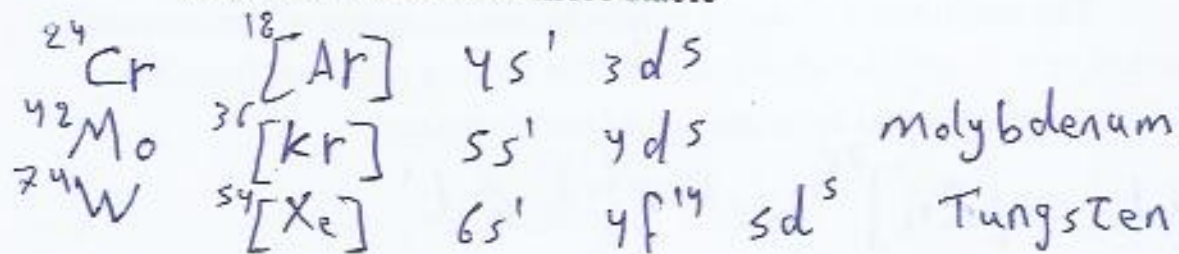 ²⁴Cr ¹⁸[Ar] 4s¹ 3d⁵
⁴²Mo ³⁶[Kr] 5s¹ 4d⁵ Molybdenum
⁷⁴W ⁵⁴[Xe] 6s¹ 4f¹⁴ 5d⁵ Tungsten